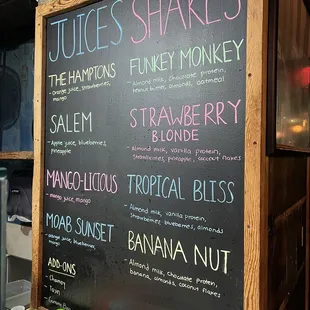 JUICES
THE HAMPTONS
- Orange juice, strawberries,
mango
SALEM
- Apple juice, blueberries,
pineapple
MANGO-LICIOUS
- mango juice, mango
MOAB SUNSET
- orange juice, blueberries,
mango
ADD-ONS
SHAKES
FUNKEY MONKEY
- Almond milk, chocolate protein,
peanut butter, almonds, oatmeal
STRAWBERRY
BLONDE
- Almond milk, vanilla protein,
Strawberries, pineapple, coconut flakes
TROPICAL BLISS
- Almond milk, vanilla protein,
Strawberries, blueberries, almonds
BANANA NUT
- Almond milk, chocolate protein,
banana, almonds, coconut flakes